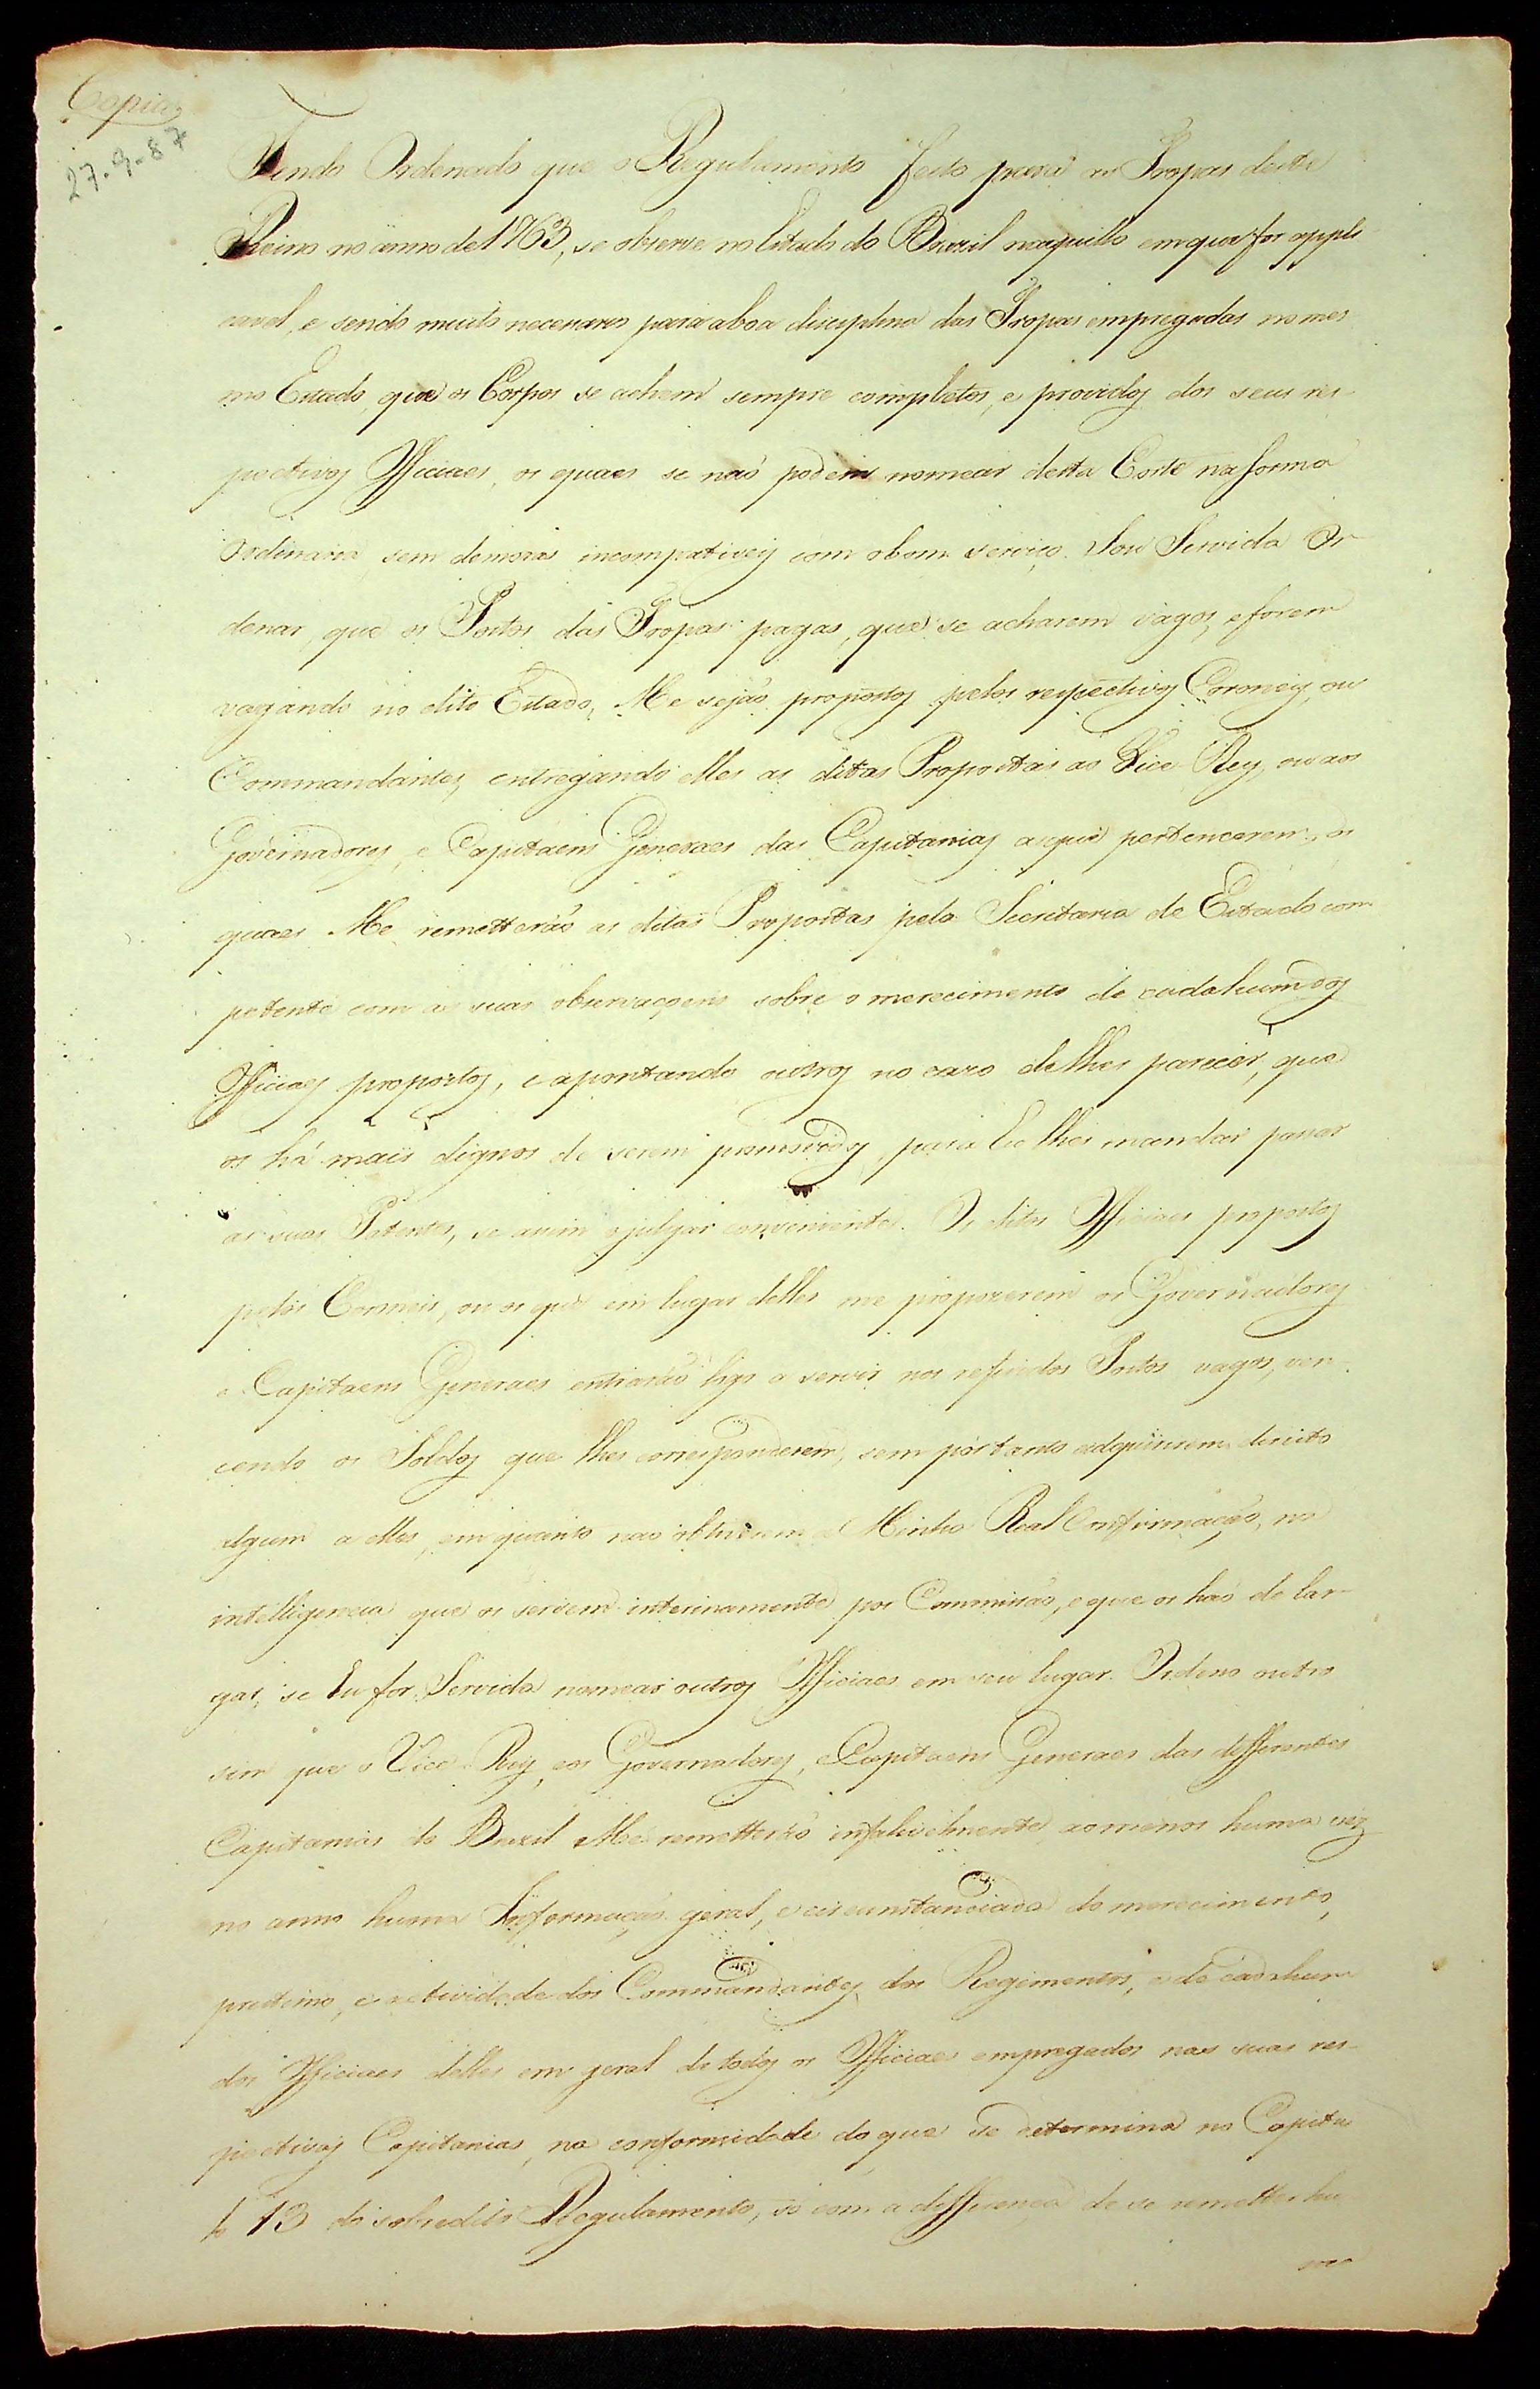 Copia
27-9-87
Tendo Ordenado que o Regulamento feito para as Tropas deste
Reino no anno de 1763, se observe no Estado do Brazil naquillo em que for appli
cavel, e sendo muito necessario para a boa disciplina das Tropas empregadas no mes
mo Estado, que os Corpos se achem sempre completos, e providos dos seus res-
pectivos Officiaes, os quaes se naõ podem nomear desta Corte na forma
Ordinaria, sem demoras incompativeis com o bom serviço. Sou Servida Or-
denar, que os Postos das Tropas pagas, que se acharem vagos, e forem
vagando no dito Estado, Me sejaõ propostos pelos respectivos Coroneis, ou
Commandantes, entregando elles as ditas Propostas ao Vice-Rey, ou aos
Governadores, e Capitaens Generaes das Capitanias a que pertencerem, os
quaes Me remetteraõ as ditas Propostas pela Secretaria de Estado com
petente com as suas observaçoens sobre o merecimento de cada hum dos
Officiaes propostos, e apontando outros no cazo de lhes parecer, que
os há mais dignos de serem promovidos, para Eu lhes mandar passar
as suas Patentes, se assim o julgar conveniente. Os ditos Officiaes propostos
pelos Coroneis, ou os que em lugar delles me propozerem os Governadores
e Capitaens Generaes entraraõ logo a servir nos referidos Postos vagos, ven
cendo os Soldos que lhes corresponderem, sem por tanto adquirirem direito
algum a elles, em quanto naõ obtiverem a Minha Real Confirmaçaõ, na
intelligencia que os servem interinamente por Commissaõ, e que os haõ de lar-
gar, se Eu for Servida nomear outros Officiaes em seu lugar. Ordeno outro
sim que o Vice-Rey, e os Governadores, e Capitaens Generaes das differentes
Capitanias do Brazil Me remetteraõ infalivelmente, ao menos huma vez
no anno huma Informaçaõ geral, e circunstanciada do merecimento,
prestimo, e actividade dos Commandantes dos Regimentos, e de cada hum
dos Officiaes delles em geral de todos os Officiaes empregados nas suas res-
pectivas Capitanias, na conformidade do que se determina no Capitu
lo 13 do sobredito Regulamento, só com a differença de se remetter hu
ma